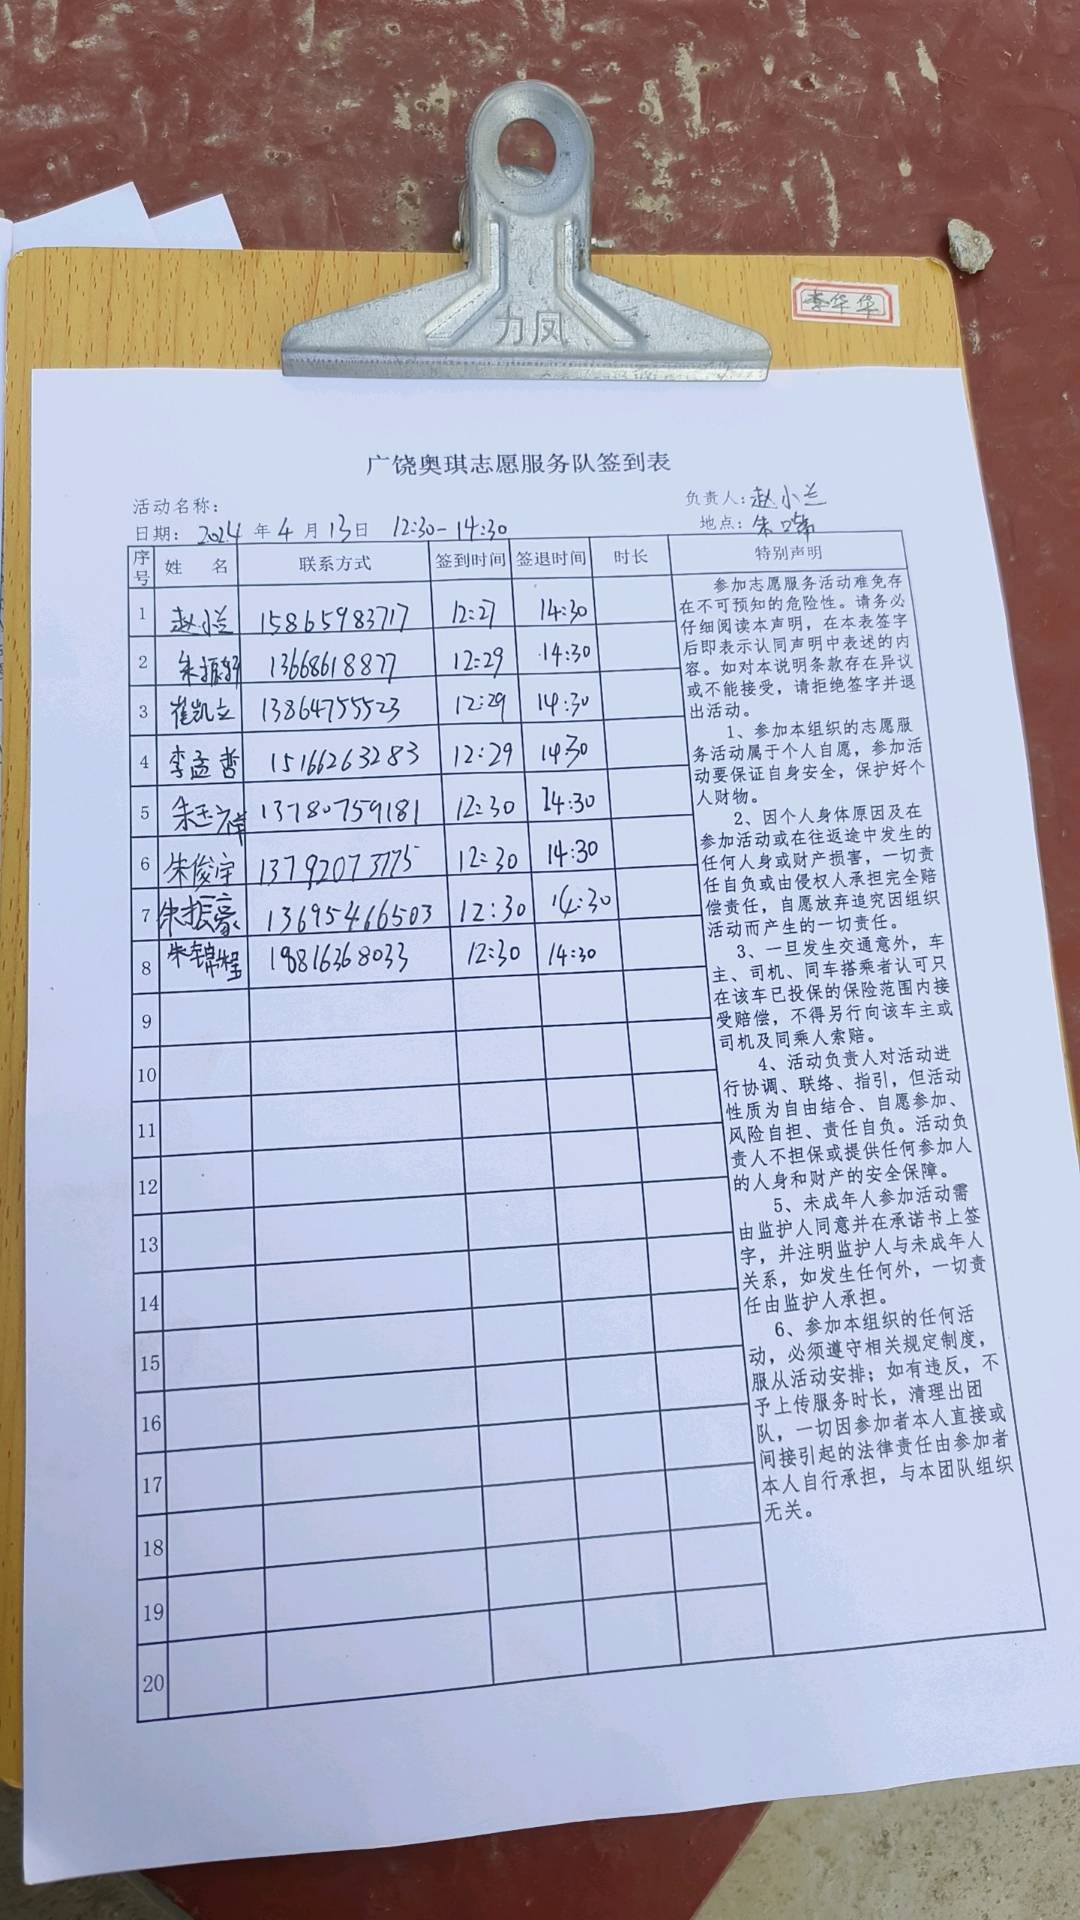 力风
李华华
广饶奥琪志愿服务队签到表
活动名称：
负责人：赵小兰
日期： 2024 年 4 月 13 日 12:30-14:30
地点：朱口
序号 姓 名 联系方式 签到时间 签退时间 时长 特别声明
1 赵小兰 15865983717 12:27 14:30
2 朱振 13668618877 12:29 14:30
3 崔凯立 13864755523 12:29 14:30
4 李孟哲 15166263283 12:29 14:30
5 朱玉祥 13780759181 12:30 14:30
6 朱俊宇 13792073775 12:30 14:30
7 朱振豪 13695466503 12:30 14:30
8 朱锦程 19816368033 12:30 14:30
9
10
11
12
13
14
15
16
17
18
19
20
参加志愿服务活动难免存
在不可预知的危险性。请务必
仔细阅读本声明，在本表签字
后即表示认同声明中表述的内
容。如对本说明条款存在异议
或不能接受，请拒绝签字并退
出活动。
1、参加本组织的志愿服
务活动属于个人自愿，参加活
动要保证自身安全，保护好个
人财物。
2、因个人身体原因及在
参加活动或在往返途中发生的
任何人身或财产损害，一切责
任自负或由侵权人承担完全赔
偿责任，自愿放弃追究因组织
活动而产生的一切责任。
3、一旦发生交通意外，车
主、司机、同车搭乘者认可只
在该车已投保的保险范围内接
受赔偿，不得另行向该车主或
司机及同乘人索赔。
4、活动负责人对活动进
行协调、联络、指引，但活动
性质为自由结合、自愿参加、
风险自担、责任自负。活动负
责人不担保或提供任何参加人
的人身和财产的安全保障。
5、未成年人参加活动需
由监护人同意并在承诺书上签
字，并注明监护人与未成年人
关系，如发生任何外，一切责
任由监护人承担。
6、参加本组织的任何活
动，必须遵守相关规定制度，
服从活动安排；如有违反，不
予上传服务时长，清理出团
队，一切因参加者本人直接或
间接引起的法律责任由参加者
本人自行承担，与本团队组织
无关。